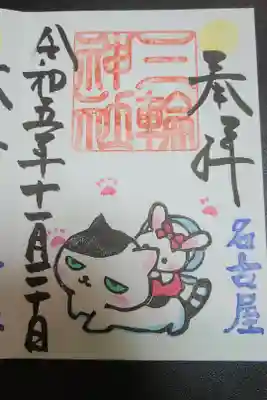 奉拝
名古屋
三輪
神社
令和五年十一月二十日